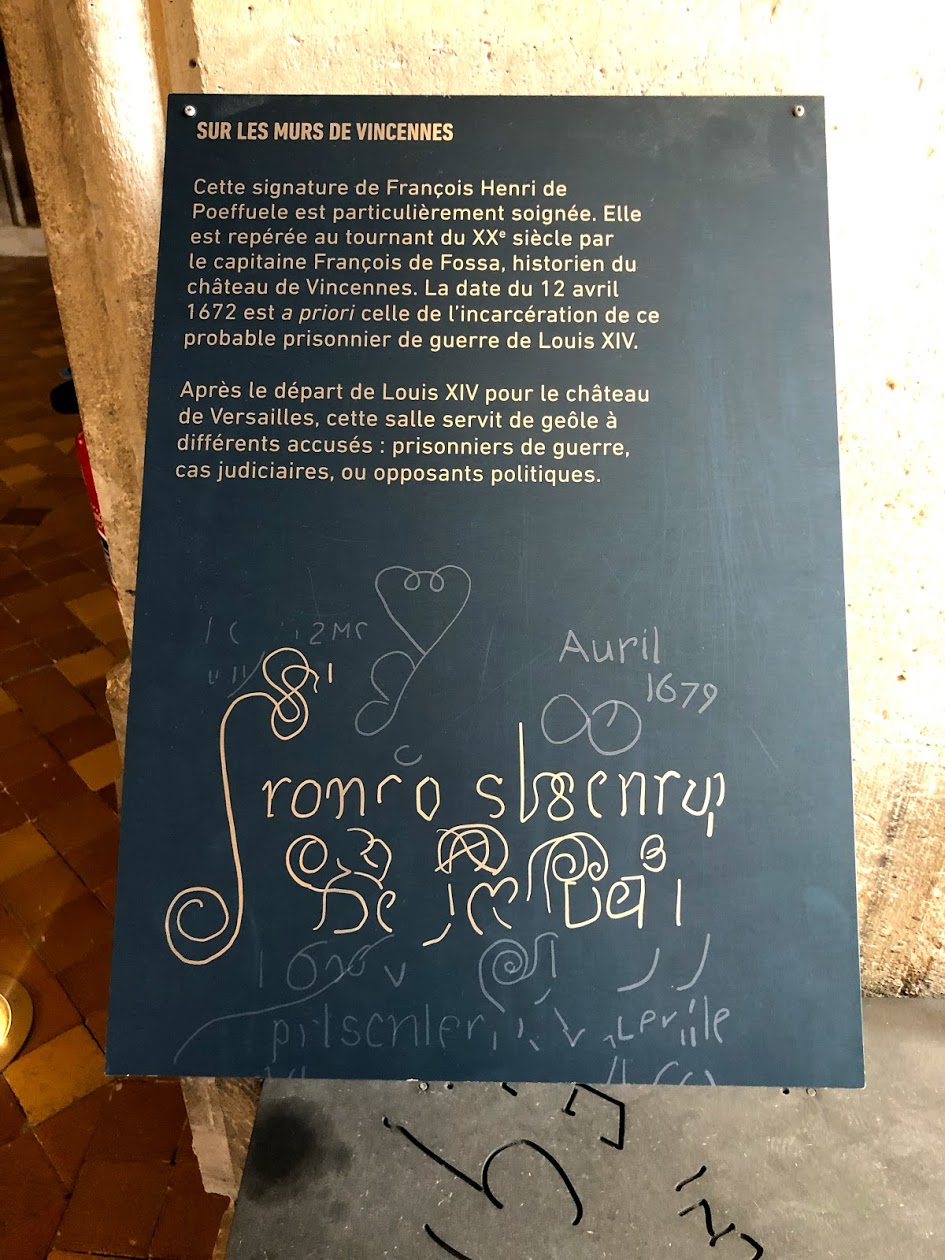 SUR LES MURS DE VINCENNES
Cette signature de François Henri de
Poeffuele est particulièrement soignée. Elle
est repérée au tournant du XXᵉ siècle par
le capitaine François de Fossa, historien du
château de Vincennes. La date du 12 avril
1672 est a priori celle de l'incarcération de ce
probable prisonnier de guerre de Louis XIV.
Après le départ de Louis XIV pour le château
de Versailles, cette salle servit de geôle à
différents accusés : prisonniers de guerre,
cas judiciaires, ou opposants politiques.
Auril
1679